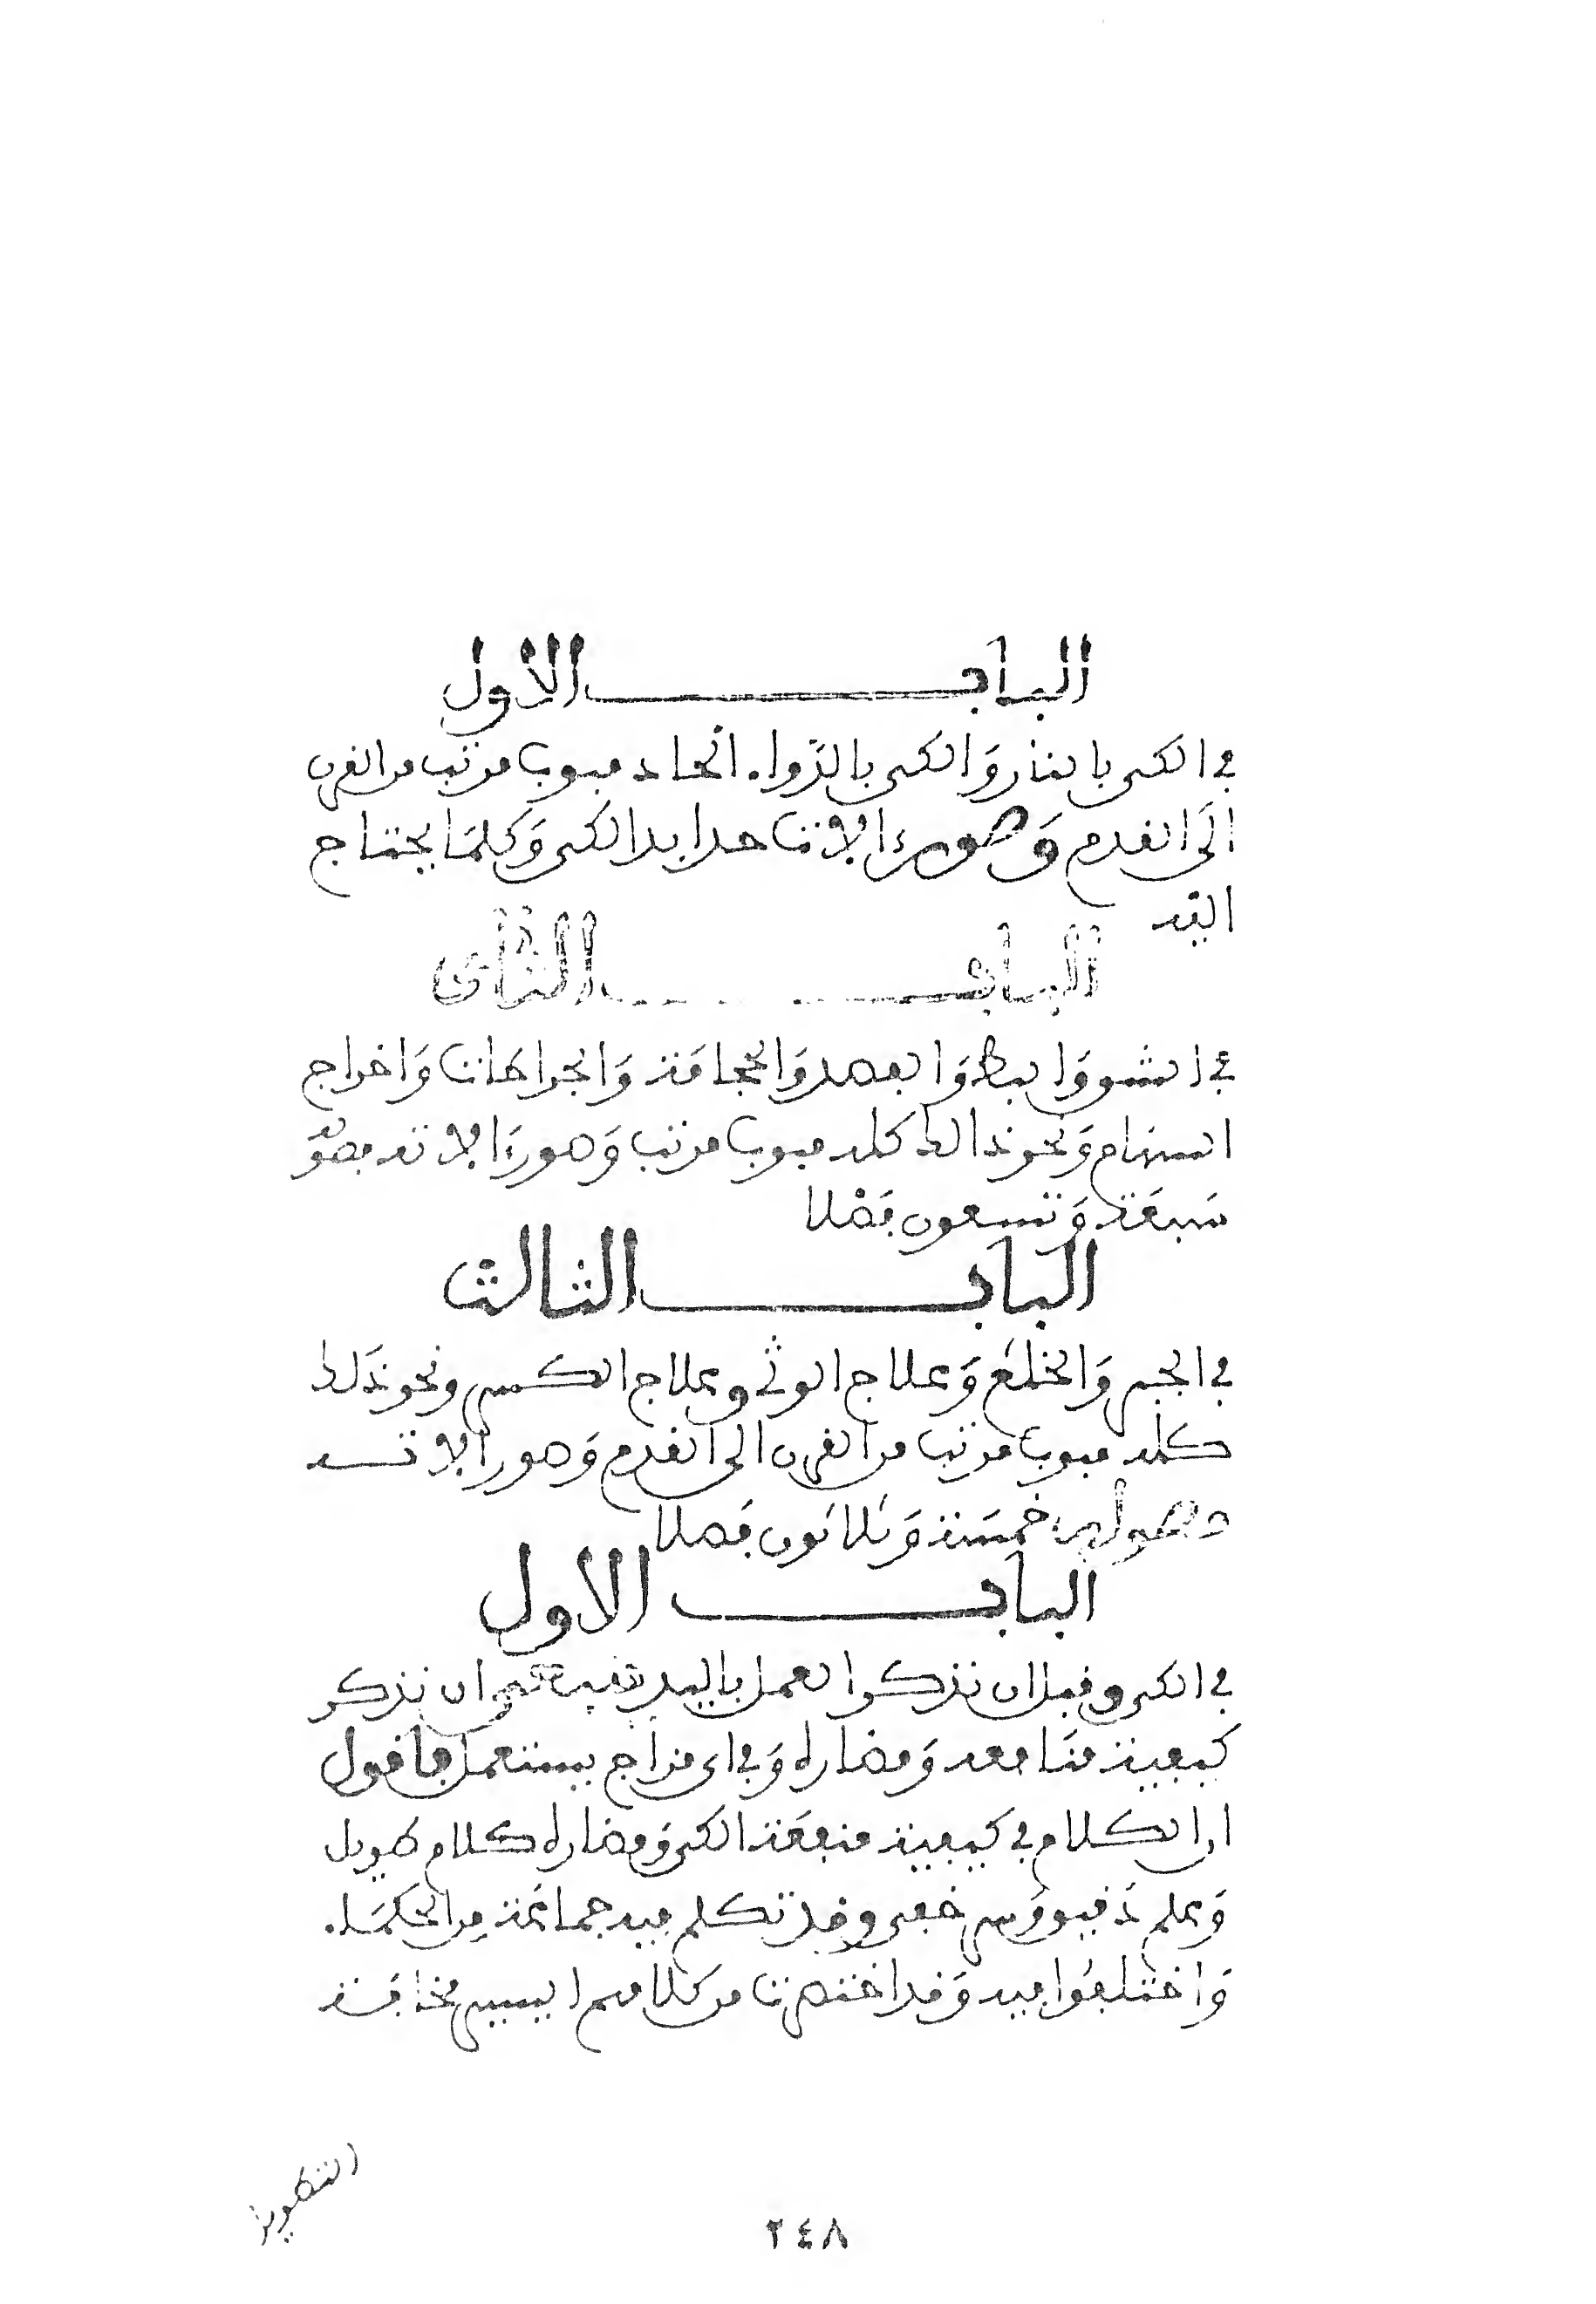 البـاب الاول
في الكي بالنار والكي بالدواء الحاد مبوب مرتب من القرن
الى القدم وصورة الالات حدايد الكي وكلما يحتاج
اليه
البـاب الثاني
في الشق والبط والفصد والحجامة والجراحات واخراج
السهام ونحو ذالك كله مبوب مرتب وصورة الالاته
سبعة وتسعون فصلا
البـاب الثالث
في الجبر والخلع وعلاج الوثي وعلاج الكسر ونحو ذلك
كله مبوب مرتب من القرن الى القدم وصور الالاته
خمسة وثلاثون فصلا
البـاب الاول
في الكي وقبل ان نذكر العمل باليد ان نذكر
كيفية منافعه ومضاره وفي اي مزاج يستعمل فاقول
ان الكلام في كيفية منفعة الكي ومضاره كلام طويل
وعلم دقيق وسر خفي وقد تكلم فيه جماعة من الحكماء
واختلفوا فيه وقد اختصرت من كلامهم اليسير مخافة
التطويل
٢٤٨